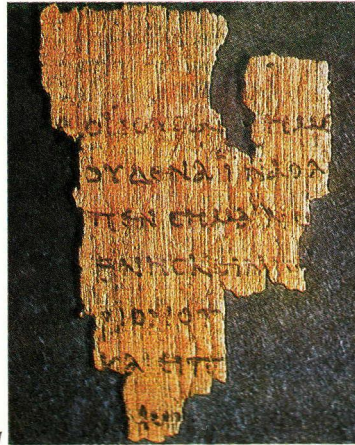 ΟΙ ΙΟΥΔΑΙ ΗΜΕ
ΟΥΔΕΝΑ ΙΝΑ Ο Λ
ΠΕΝ CΗΜΑΙ
ΘΝΗCΚΕΙΝ
ΡΙΟΝ Ο Π
ΚΑΙ ΕΙΠ